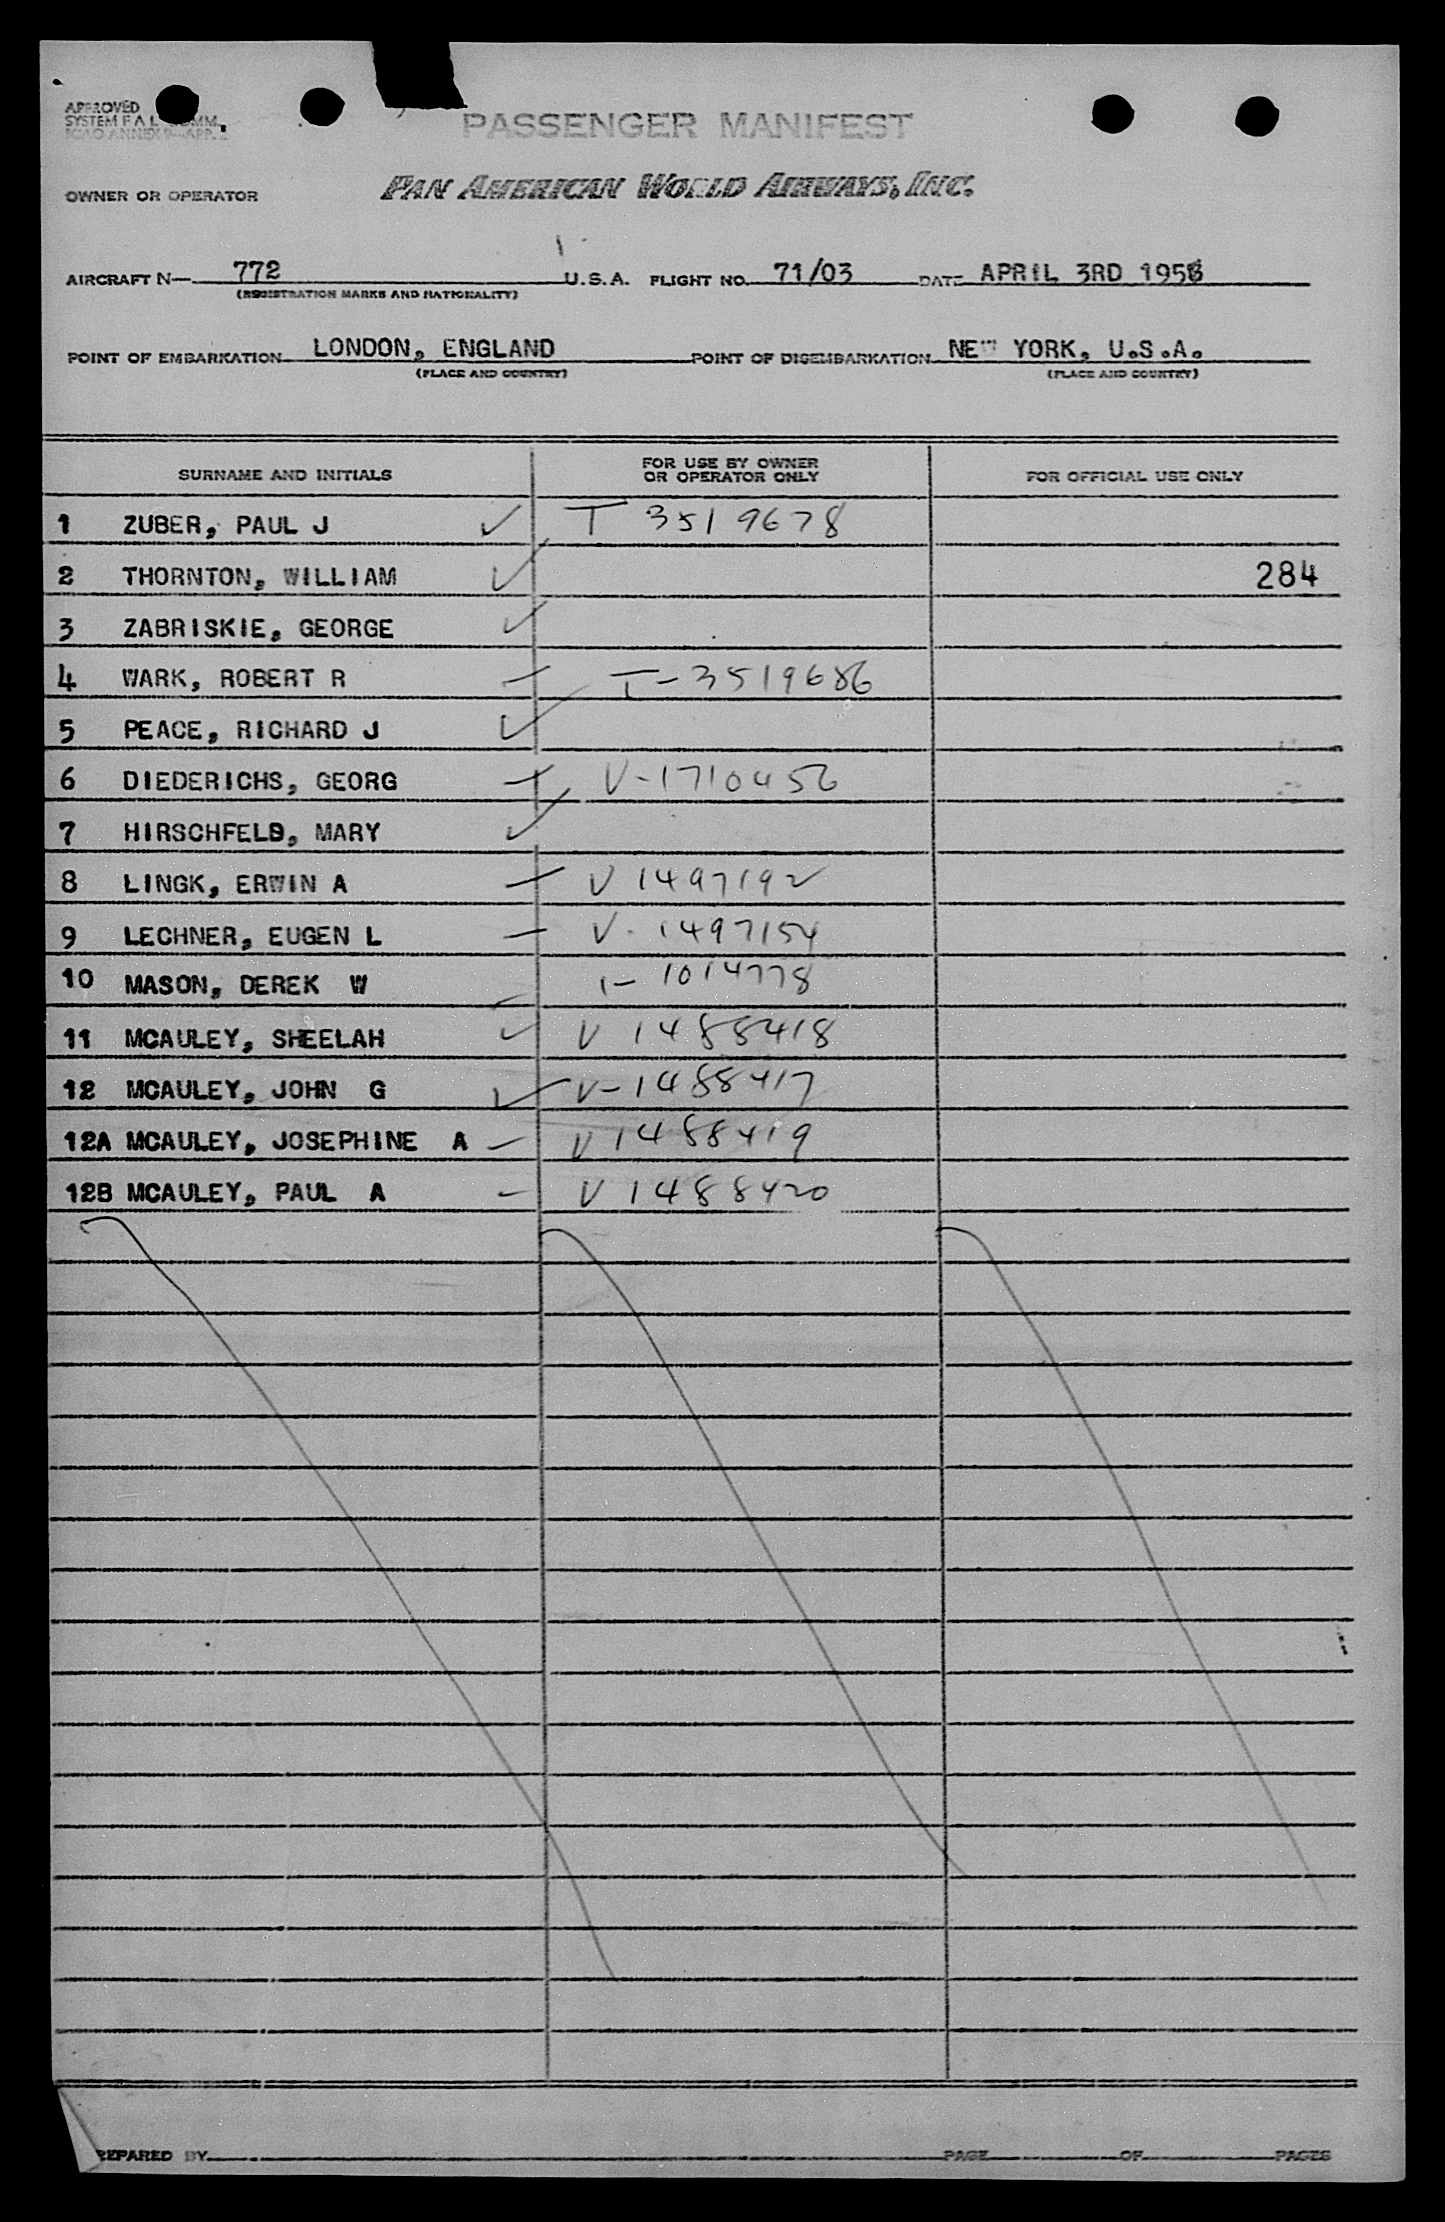 APPROVED
SYSTEM F A L COMM.
ICAO ANNEX 9—APP. 
PASSENGER MANIFEST
OWNER OR OPERATOR PAN AMERICAN WORLD AIRWAYS, INC.
AIRCRAFT N— 772 U.S.A. FLIGHT NO. 71/03 DATE APRIL 3RD
(REGISTRATION MARKS AND NATIONALITY)
POINT OF EMBARKATION LONDON, ENGLAND POINT OF DISEMBARKATION NEW YORK, U.S.A.
(PLACE AND COUNTRY) (PLACE AND COUNTRY)
SURNAME AND INITIALS FOR USE BY OWNER OR OPERATOR ONLY FOR OFFICIAL USE ONLY
1 ZUBER, PAUL J ✓ T 3519678
2 THORNTON, WILLIAM ✓ 284
3 ZABRISKIE, GEORGE ✓
4 WARK, ROBERT R — T-3519686
5 PEACE, RICHARD J ✓
6 DIEDERICHS, GEORG V-1710456
7 HIRSCHFELD, MARY ✓
8 LINGK, ERWIN A — V 1497192
9 LECHNER, EUGEN L — V-1497154
10 MASON, DEREK W 1-1014778
11 MCAULEY, SHEELAH ✓ V 1488418
12 MCAULEY, JOHN G ✓ V-1488417
12A MCAULEY, JOSEPHINE A — V 1488419
12B MCAULEY, PAUL A — V 1488420
PREPARED BY PAGE OF PAGES